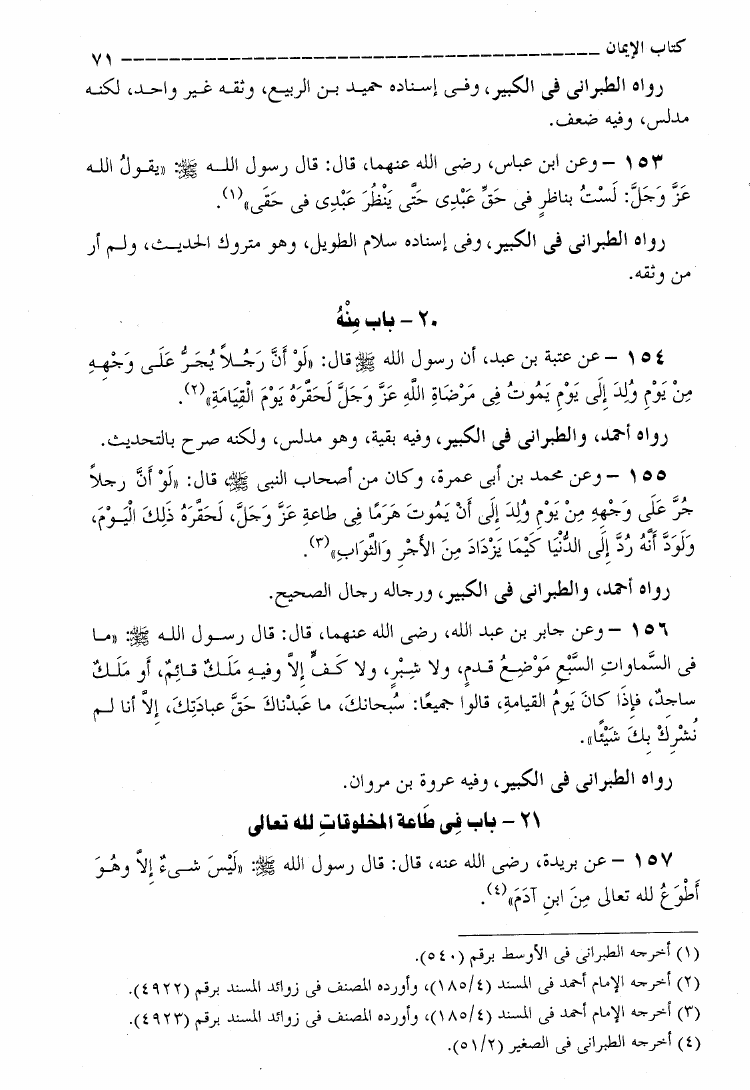 كتاب الإيمان ـــــــــــــــــــــــــــــــــــــــــــــــــــــــــــــ ٧١
رواه الطبرانى فى الكبير، وفى إسناده حميد بن الربيع، وثقه غير واحد، لكنه
مدلس، وفيه ضعف.
١٥٣ – وعن ابن عباس، رضى الله عنهما، قال: قال رسول اللـه ﷺ: «يقولُ الله
عَزَّ وَجَلَّ: لَسْتُ بناظرٍ فى حَقِّ عَبْدِى حَتَّى يَنْظُرَ عَبْدِى فى حَقى»(١).
رواه الطبرانى فى الكبير، وفى إسناده سلام الطويل، وهو متروك الحديث، ولم أر
من وثقه.
٢٠ – باب مِنْهُ
١٥٤ – عن عتبة بن عبد، أن رسول الله ﷺ قال: «لَوْ أَنَّ رَجُـلاً يُجَرُّ عَلَـى وَجْهِـهِ
مِنْ يَوْمِ وُلِدَ إِلَى يَوْمِ يَمُوتُ فِى مَرْضَاةِ اللَّهِ عَزَّ وَجَلَّ لَحَقَّرَهُ يَوْمَ الْقِيَامَةِ»(٢).
رواه أحمد، والطبرانى فى الكبير، وفيه بقية، وهو مدلس، ولكنه صرح بالتحديث.
١٥٥ – وعن محمد بن أبى عمرة، وكان من أصحاب النبى ﷺ، قال: «لَوْ أَنَّ رجلاً
جُرَّ عَلَى وَجْهِهِ مِنْ يَوْمِ وُلِدَ إِلَى أَنْ يَمُوتَ هَرَمًا فِى طاعةِ عَزَّ وَجَلَّ، لَحَقَّرَهُ ذَلِكَ الْيَـوْمَ،
وَلَودَّ أَنَّهُ رُدَّ إِلَى الدُّنْيَا كَيْمَا يَزْدَادَ مِنَ الأَجْرِ وَالثَّوَابِ»(٣).
رواه أحمد، والطبرانى فى الكبير، ورجاله رجال الصحيح.
١٥٦ – وعن جابر بن عبد الله، رضى الله عنهما، قال: قال رسـول اللـه ﷺ: «مـا
فى السَّماواتِ السَّبْعِ مَوْضِعُ قدمٍ، ولا شِبْرٍ، ولا كَـفٍّ إلاَّ وفيـهِ مَلَـكٌ قـائِمٌ، أو مَلَـكٌ
ساجدٌ، فإِذَا كانَ يَومُ القيامةِ، قالوا جميعًا: سُبحانكَ، ما عبَدْناكَ حَقَّ عبادَتِكَ، إلاَّ أنا لـم
نُشْرِكْ بِكَ شَيْئًا».
رواه الطبرانى فى الكبير، وفيه عروة بن مروان.
٢١ – باب فِى طَاعة المخلوقاتِ لله تعالى
١٥٧ – عن بريدة، رضى الله عنه، قال: قال رسول الله ﷺ: «لَيْسَ شـىءٌ إلاَّ وهُـوَ
أَطْوَعُ لله تعالى مِنَ ابنِ آدَمَ»(٤).
(١) أخرجه الطبرانى فى الأوسط برقم (٥٤٠).
(٢) أخرجه الإمام أحمد فى المسند (١٨٥/٤)، وأورده المصنف فى زوائد المسند برقم (٤٩٢٢).
(٣) أخرجه الإمام أحمد فى المسند (١٨٥/٤)، وأورده المصنف فى زوائد المسند برقم (٤٩٢٣).
(٤) أخرجه الطبرانى فى الصغير (٥١/٢).